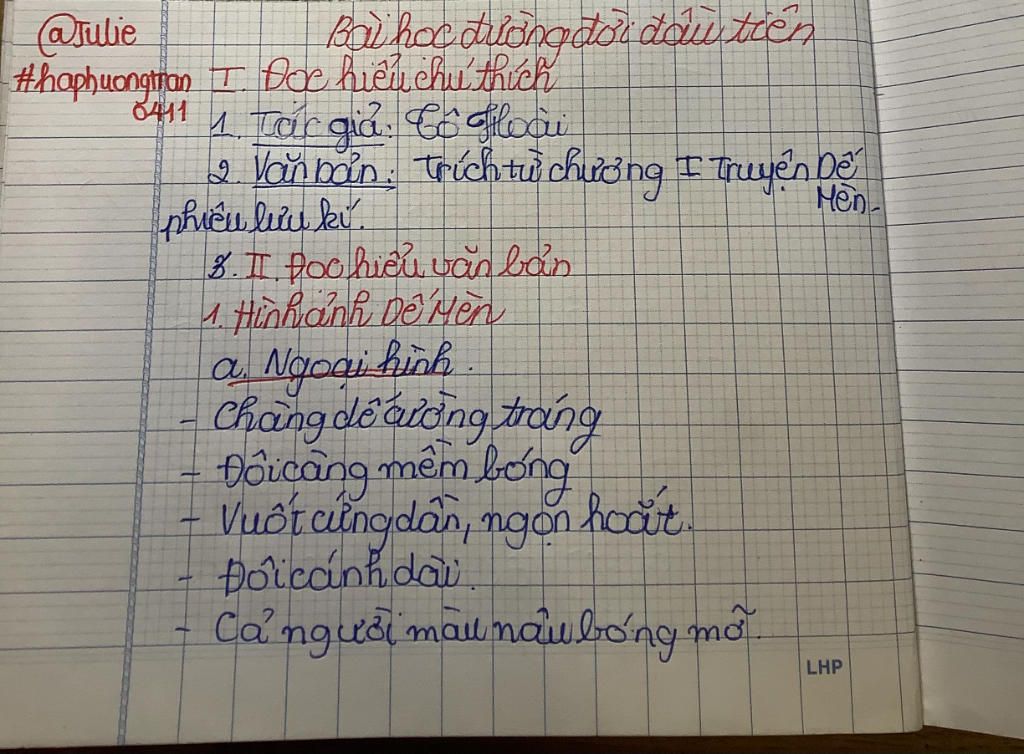 @Julie
Bài học đường đời đầu tiên
#haphuongtran
0411
I Đọc hiểu chú thích
1. Tác giả: Tô Hoài
2. Văn bản: trích từ chương I Truyện Dế
Mèn
phiêu lưu kí.
3. II. Đọc hiểu văn bản
1. Hình ảnh Dế Mèn
a. Ngoại hình.
- Chàng dế cường tráng
- Đôi càng mềm bóng
- Vuốt cứng dần, ngọn hoắt.
- Đôi cánh dài.
- Cả người màu nâu bóng mỡ.
LHP